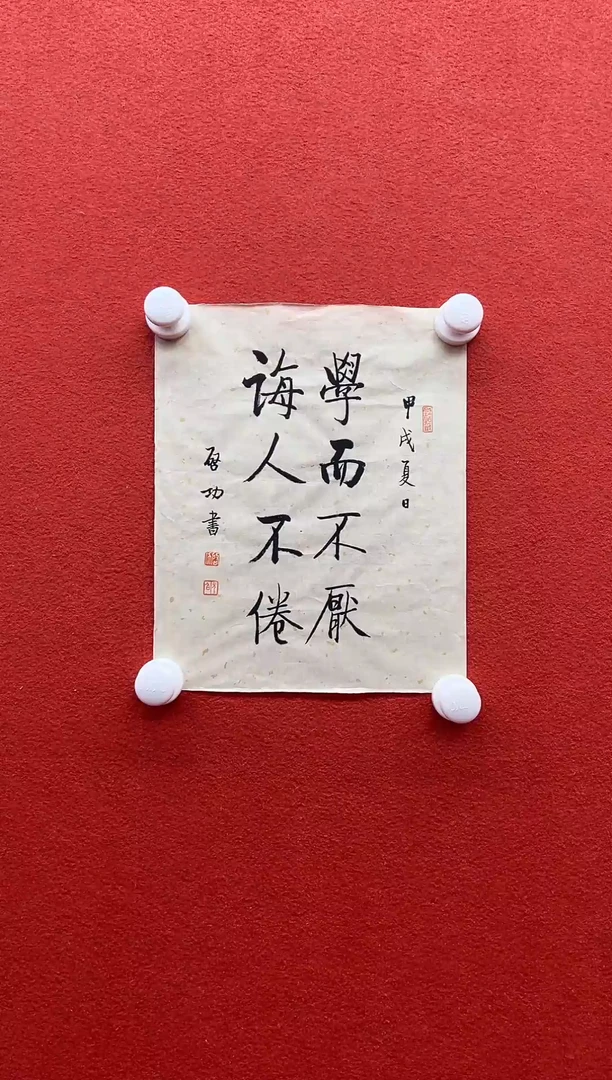 甲戌夏日
學而不厭
誨人不倦
啓功書